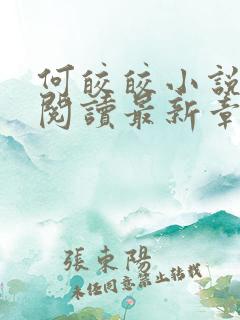 何皎皎小說
閱讀最新章
張東陽
未任同意禁止轉載